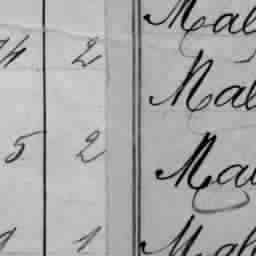 Mal
4 2
Mal
5 2
Mal
1
Mal